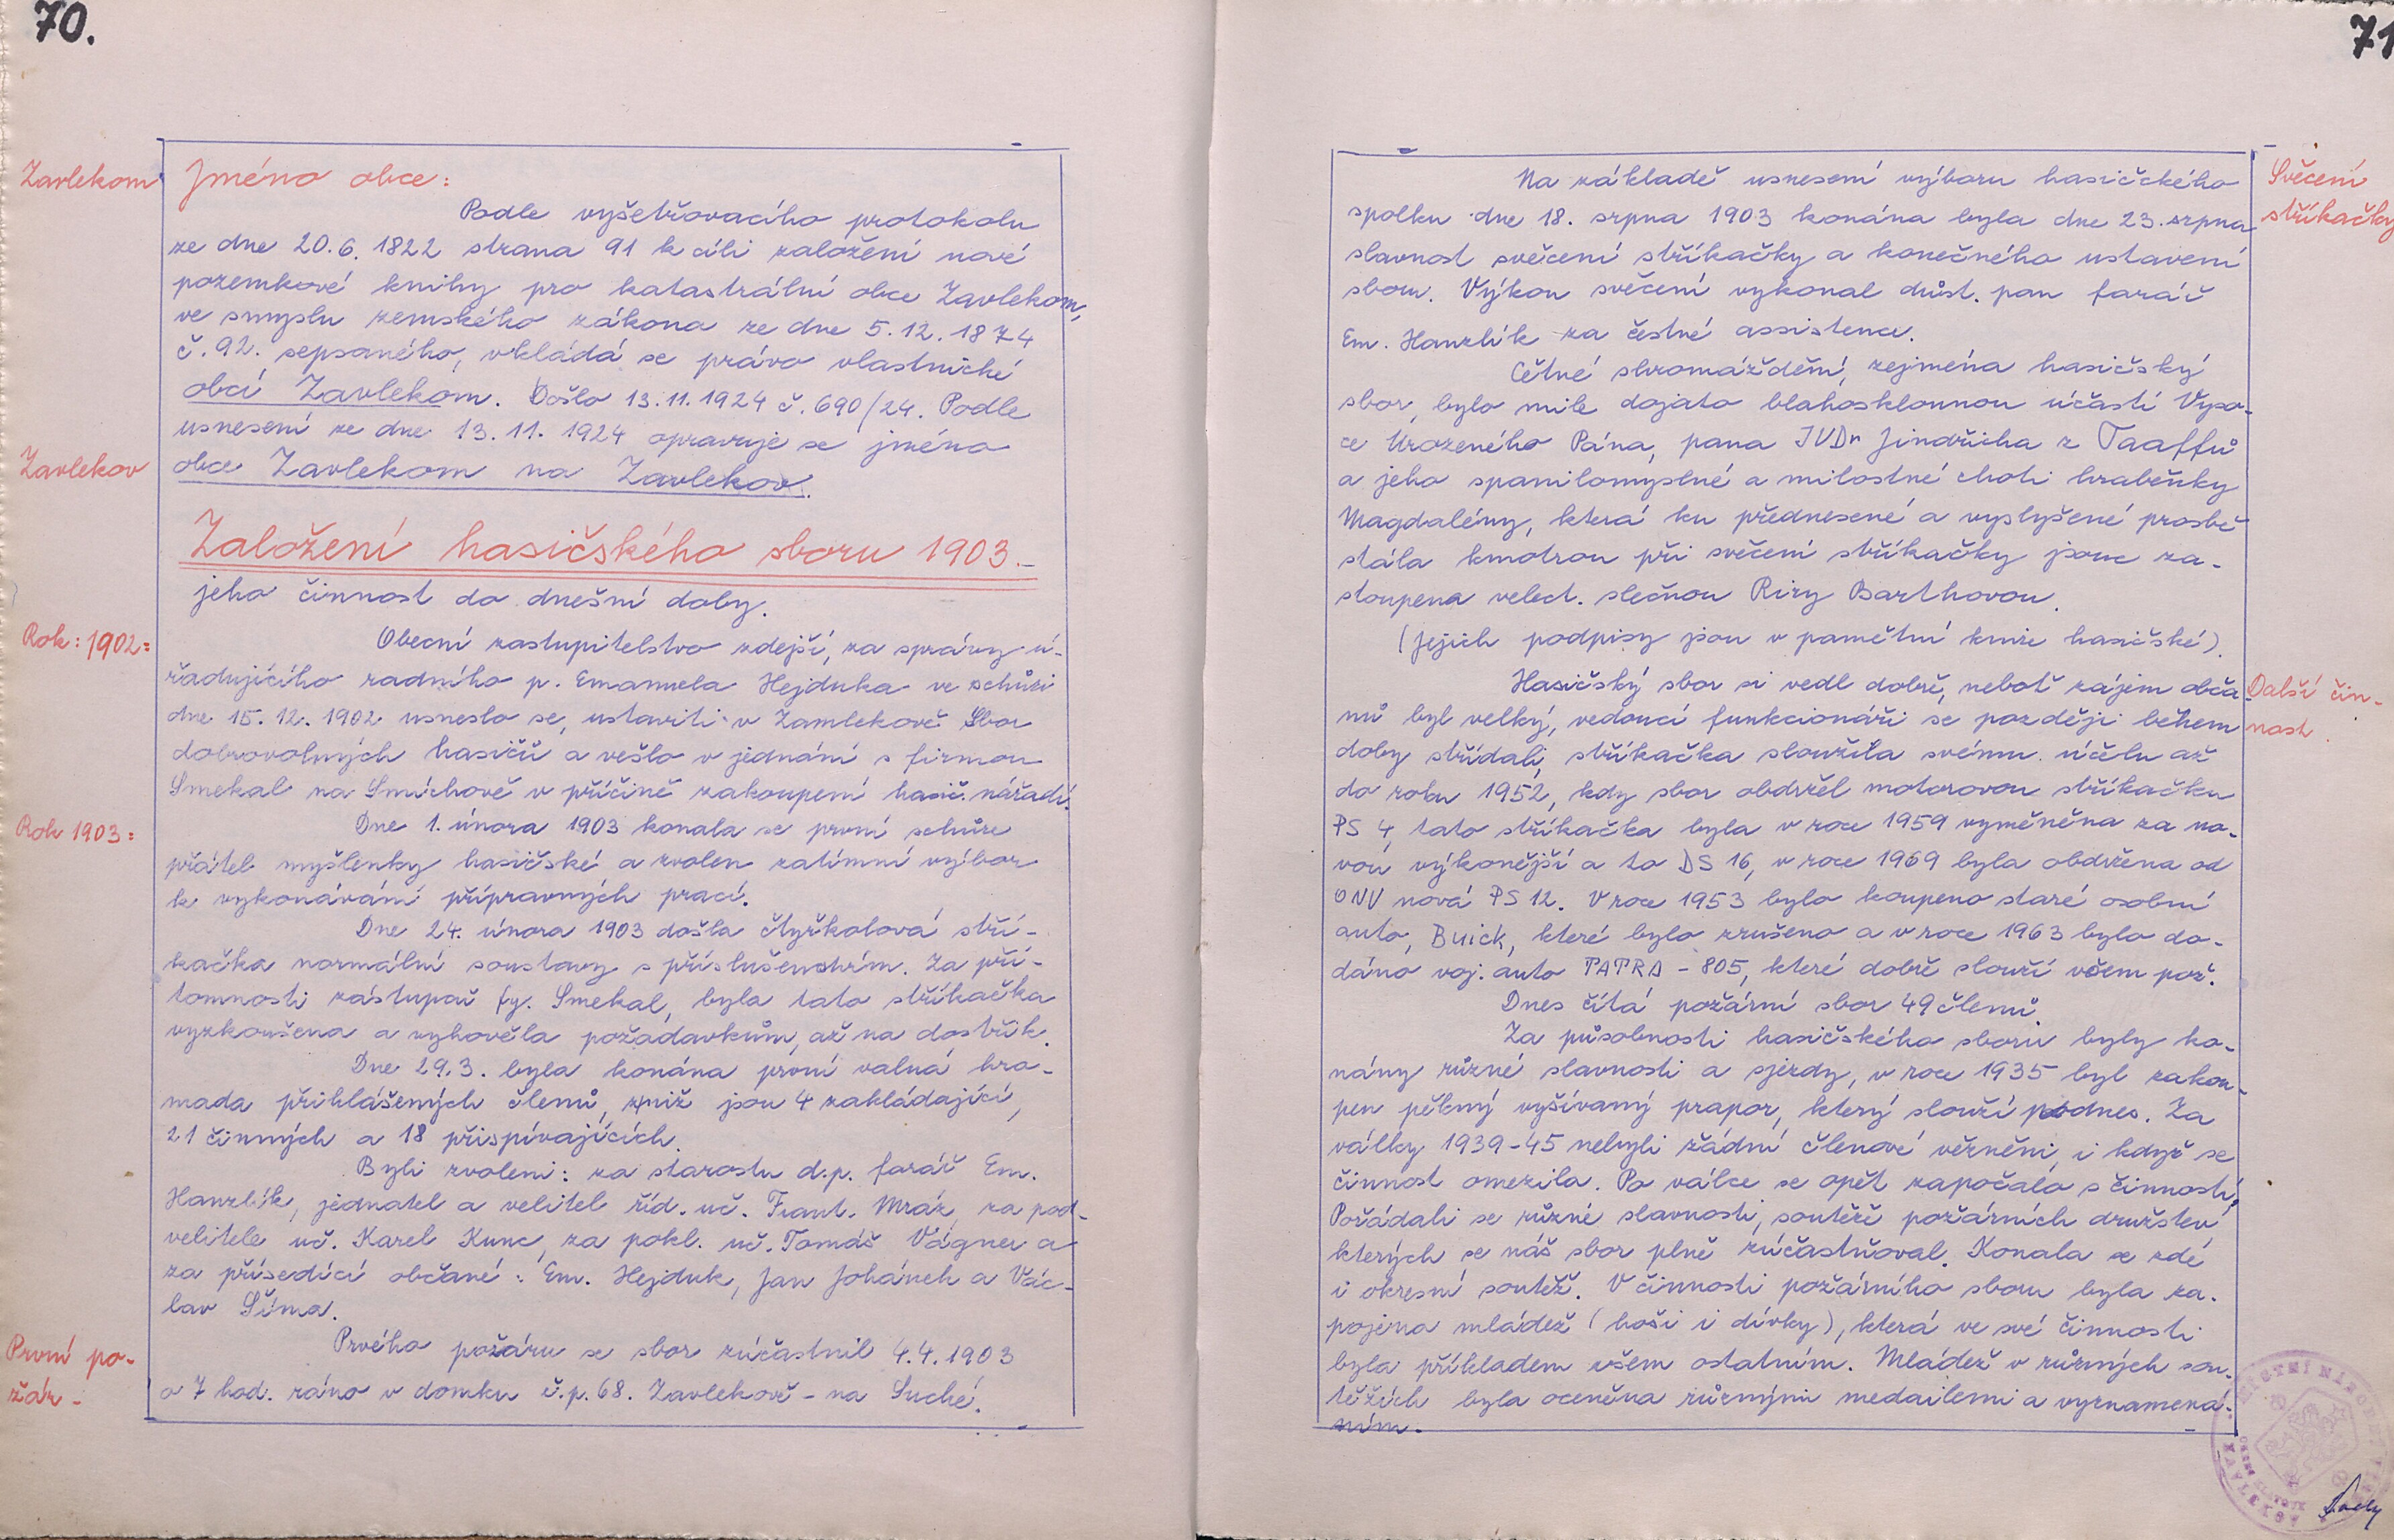 70.
Zavlekom
Jméno obce:
Podle vyšetřovacího protokolu
ze dne 20.6.1822 strana 91 k cíli založení nové
pozemkové knihy pro katastrální obce Zavlekom,
ve smyslu zemského zákona ze dne 5.12.1874
č.92. sepsaného, vkládá se právo vlastnické
obcí Zavlekom. Došlo 13.11.1924 č.690/24. Podle
usnesení ze dne 13.11.1924 opravuje se jméno
Zavlekov
obce Zavlekom na Zavlekov.
Založení hasičského sboru 1903.-
jeho činnost do dnešní doby.
Rok: 1902=
Obecní zastupitelstvo zdejší, za správy ú-
řadujícího radního p. Emanuela Hejduka ve schůzi
dne 15.12.1902 usneslo se, ustaviti v Zamlekově Sbor
dobrovolných hasičů a vešlo v jednání s firmou
Smekal na Smíchově v příčině zakoupení hasič. nářadí.
Rok 1903=
Dne 1. února 1903 konala se první schůze
přátel myšlenky hasičské a zvolen zatímní výbor
k vykonávání přípravných prací.
Dne 24. února 1903 došla čtyřkolová stří-
kačka normální soustavy s příslušenstvím. Za pří-
tomnosti zástupců fy. Smekal, byla tato stříkačka
vyzkoušena a vyhověla požadavkům, až na dostřik.
Dne 29.3. byla konána první valná hro-
mada přihlášených členů, z niž jsou 4 zakládající,
21 činných a 18 přispívajících.
Byli zvoleni: za starostu d.p. farář Em.
Hanzlík, jednatel a velitel říd. uč. Frant. Mráz, za pod-
velitele uč. Karel Kunc, za pokl. uč. Tomáš Vágner a
za přísedící občané: Em. Hejduk, Jan Johánek a Vác-
lav Šíma.
První po-
žár -
Prvého požáru se sbor zúčastnil 4.4.1903
o 7 hod. ráno v domku č.p.68. Zavlekově - na Suché.
71
Svěcení
stříkačky
Na základě usnesení výboru hasičckého
spolku dne 18. srpna 1903 konána byla dne 23. srpna
slavnost svěcení stříkačky a konečného ustavení
sboru. Výkon svěcení vykonal důst. pan farář
Em. Hanzlík za čestné assistence.
Četné shromáždění, zejména hasičský
sbor, bylo mile dojato blahosklonnou účastí Vyso-
ce Urozeného Pána, pana JUDr Jindřicha z Taaffů
a jeho spanilomyslné a milostné choti hraběnky
Magdalény, která ku přednesené a vyslyšené prosbě
stála kmotrou při svěcení stříkačky jsouc za-
stoupena velect. slečnou Rizy Barthovou.
(jejich podpisy jsou v pamětní knize hasičské).
Další čin-
nost.
Hasičský sbor si vedl dobře, neboť zájem obča
nů byl velký, vedoucí funkcionáři se později během
doby střídali, stříkačka sloužila svému účelu až
do roku 1952, kdy sbor obdržel motorovou stříkačku
PS 4, tato stříkačka byla v roce 1959 vyměněna za no-
vou výkonější a to DS 16, v roce 1969 byla obdržena od
ONV nová PS 12. V roce 1953 bylo koupeno staré osobní
auto, Buick, které bylo zrušeno a v roce 1963 bylo do-
dáno voj. auto TATRA - 805, které dobře slouží všem pož.
Dnes čítá požární sbor 49 členů.
Za působnosti hasičského sboru byly ko-
nány různé slavnosti a sjezdy, v roce 1935 byl zakou-
pen pěkný vyšívaný prapor, který slouží podnes. Za
války 1939-45 nebyli žádní členové vězněni, i když se
činnost omezila. Po válce se opět započalo s činností.
Pořádali se různé slavnosti, soutěže požárních družstev
kterých se náš sbor plně zúčastňoval. Konala se zde
i okresní soutěž. V činnosti požárního sboru byla za-
pojena mládež (hoši i dívky), která ve své činnosti
byla příkladem všem ostatním. Mládež v různých sou-
těžích byla oceněna různými medailemi a vyznamená-
ním.